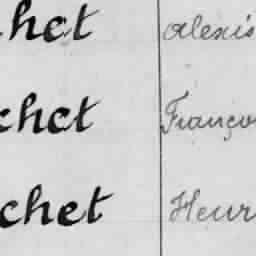 chet Alexis
chet Franço
chet Henr